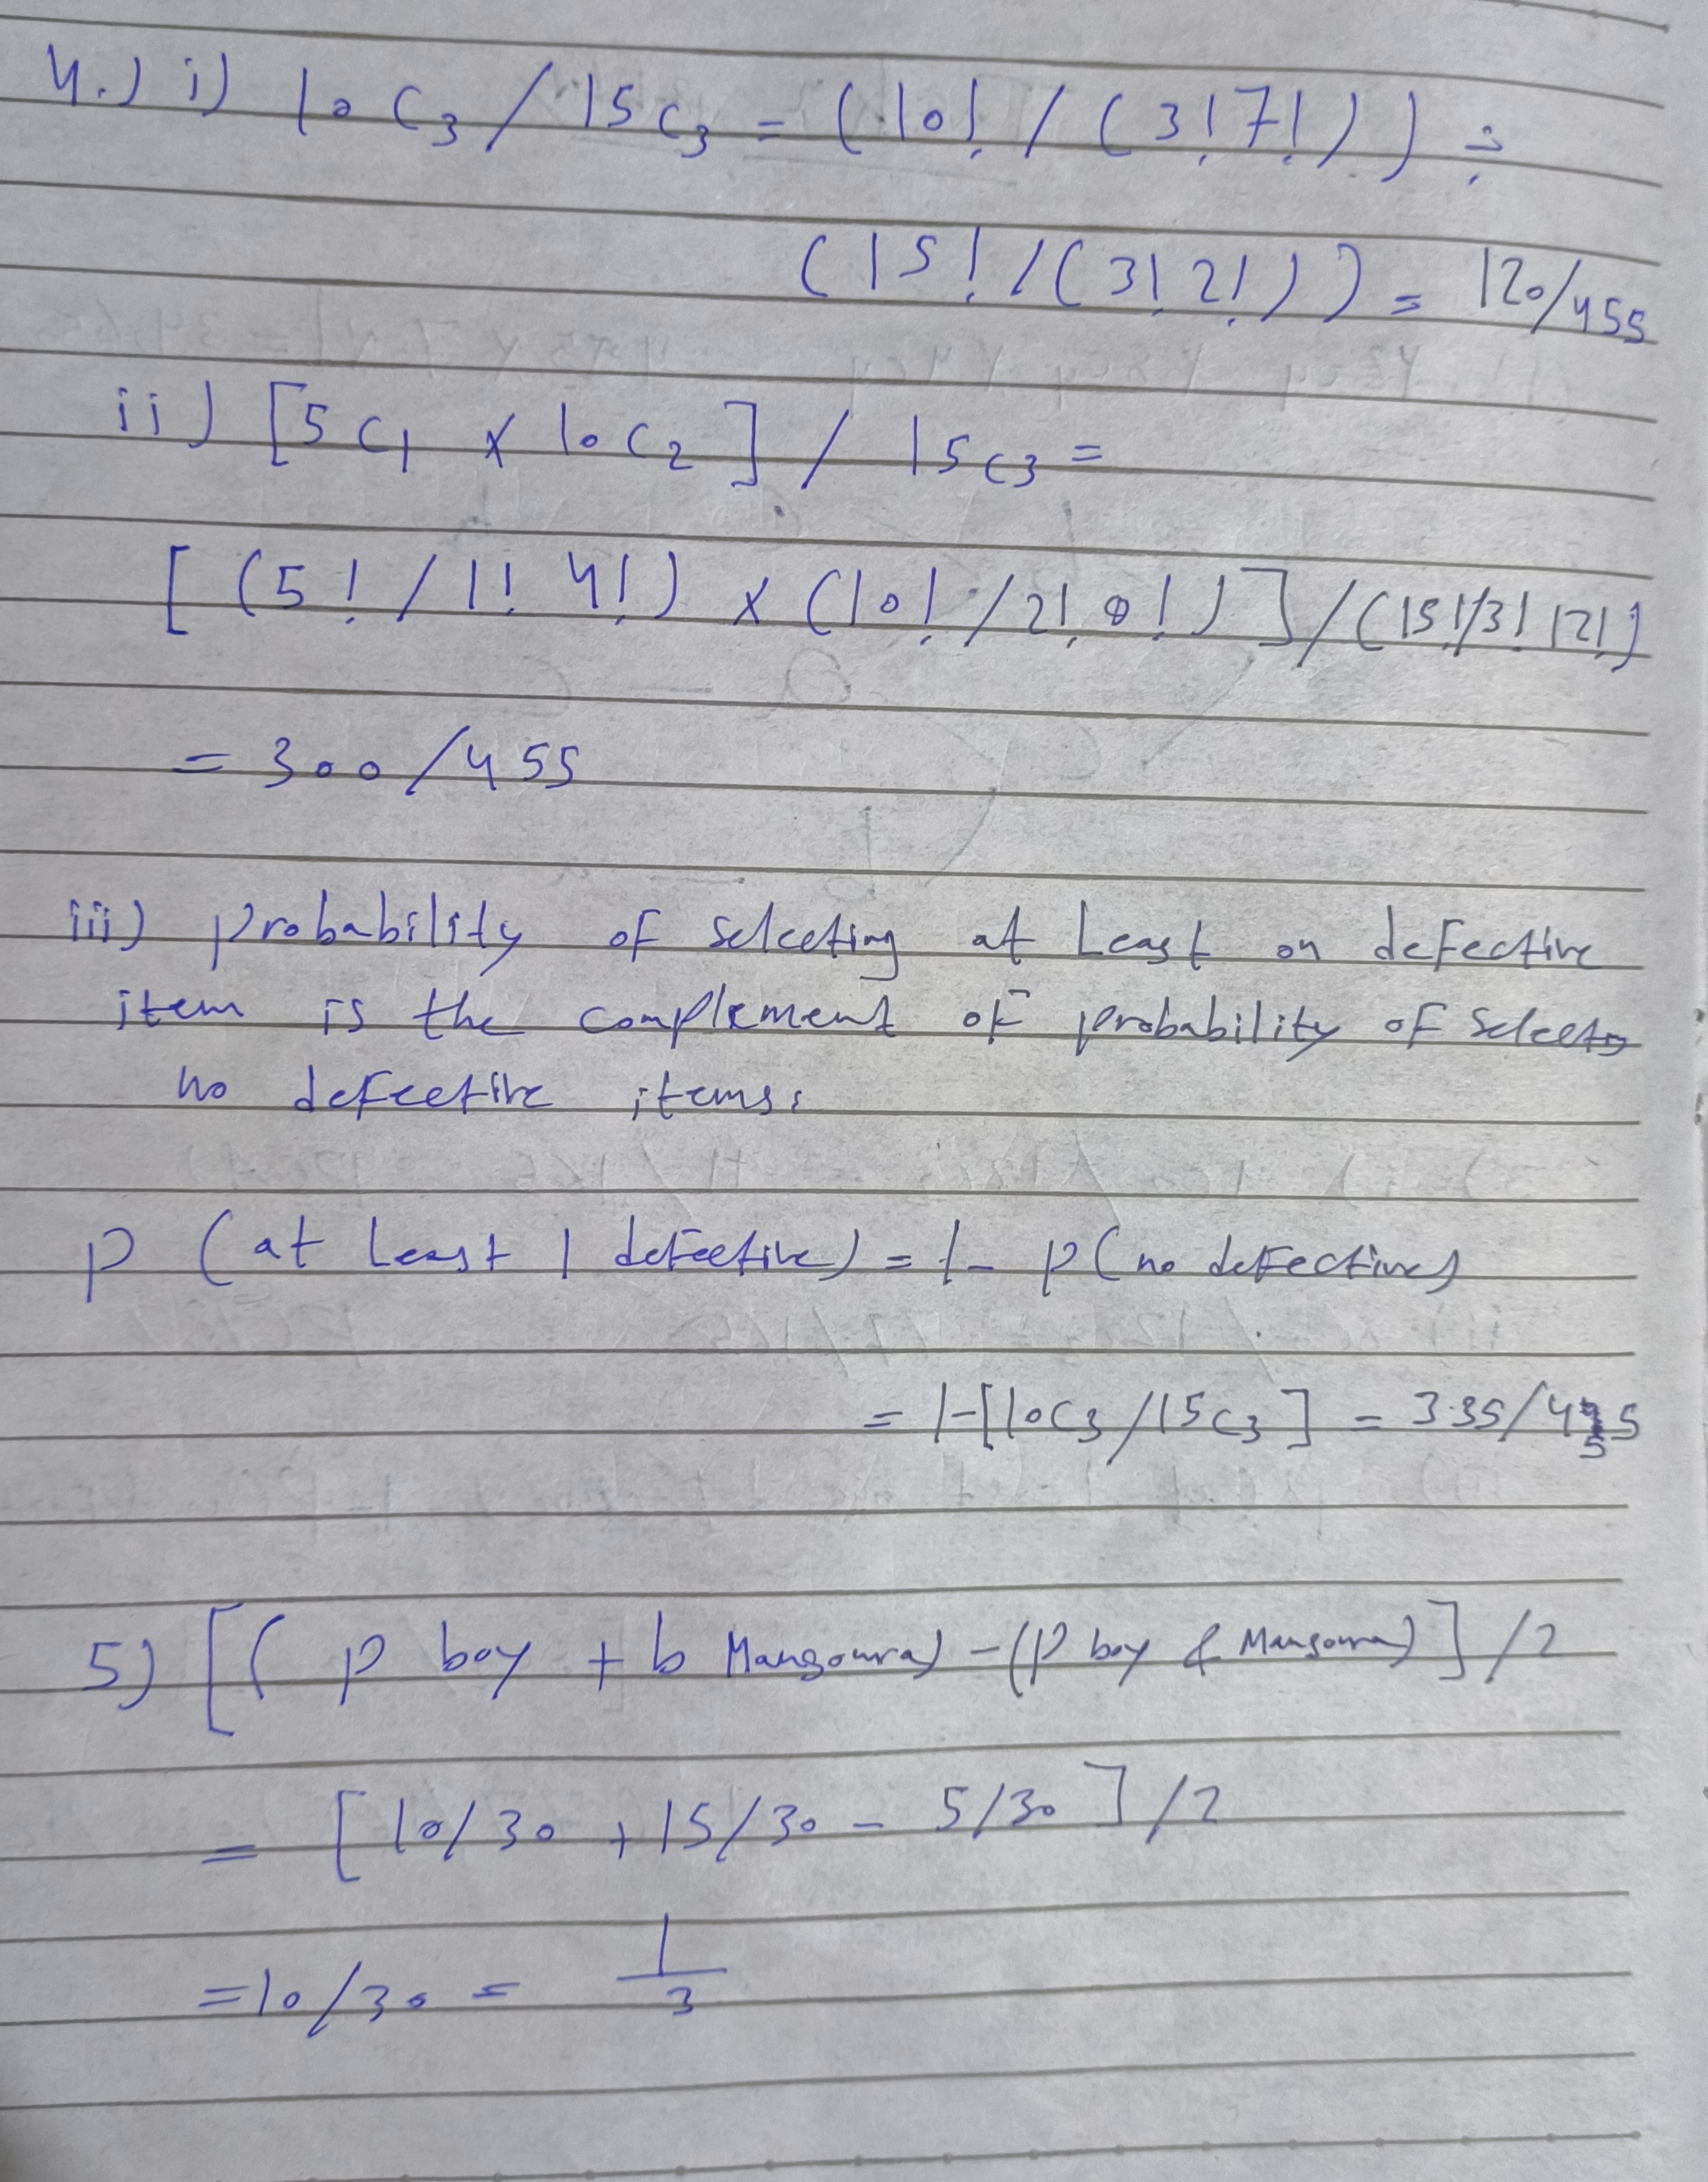 4.) i) 10C3 / 15C3 = (10! / (3!7!)) ÷
(15! / (3!2!)) = 120/455
ii) [5C1 x 10C2] / 15C3 =
[(5! / 1! 4!) x (10! / 2! 8!)] / (15!/3! 12!)
= 300/455
iii) probability of selecting at Least on defective
item is the complement of probability of
no defective items:
P (at Least 1 defective) = 1 - P(no defectives)
= 1-[10C3/15C3] = 335/455
5) [( P boy + b Mansoura) - (P boy & Mansoura)] /2
= [10/30 + 15/30 - 5/30] /2
= 10/30 = 1/3